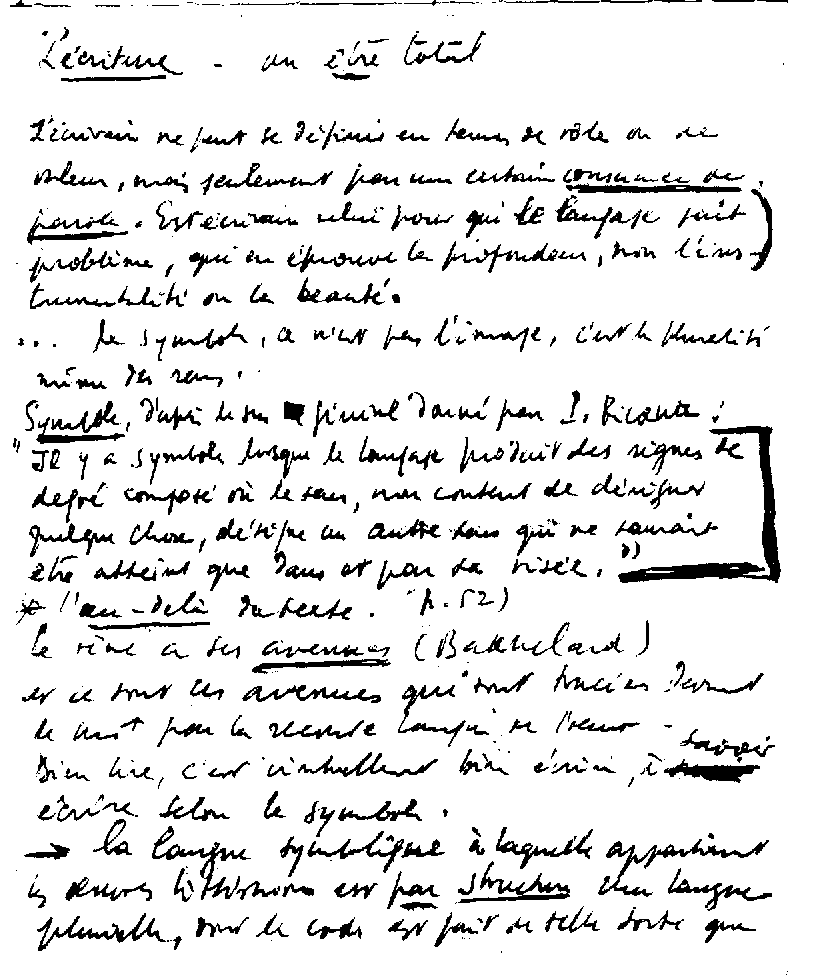 L'écriture - un être total
L'écrivain ne peut se définir en termes de rôle ou de
valeur, mais seulement par une certaine conscience de
parole. Est écrivain celui pour qui le langage fait
problème, qui en éprouve la profondeur, non l'ins-
trumentalité ou la beauté.
... Le symbole, ce n'est pas l'image, c'est la pluralité
même des sens.
Symbole, d'après le sens général donné par P. Ricoeur :
"Il y a symbole lorsque le langage produit des signes de
degré composé où le sens, non content de désigner
quelque chose, désigne un autre sens qui ne saurait
être atteint que dans et par sa visée."
* l'au-delà du texte. p. 52)
Le rêve a ses avenues (Bachelard)
et ce sont ces avenues qui sont tracées devant
le mot par la seconde langue de l'œuvre -
Bien lire, c'est virtuellement bien écrire, à savoir
écrire selon le symbole.
→ la langue symbolique à laquelle appartiennent
les œuvres littéraires est par structure une langue
plurielle, dont le code est fait de telle sorte que